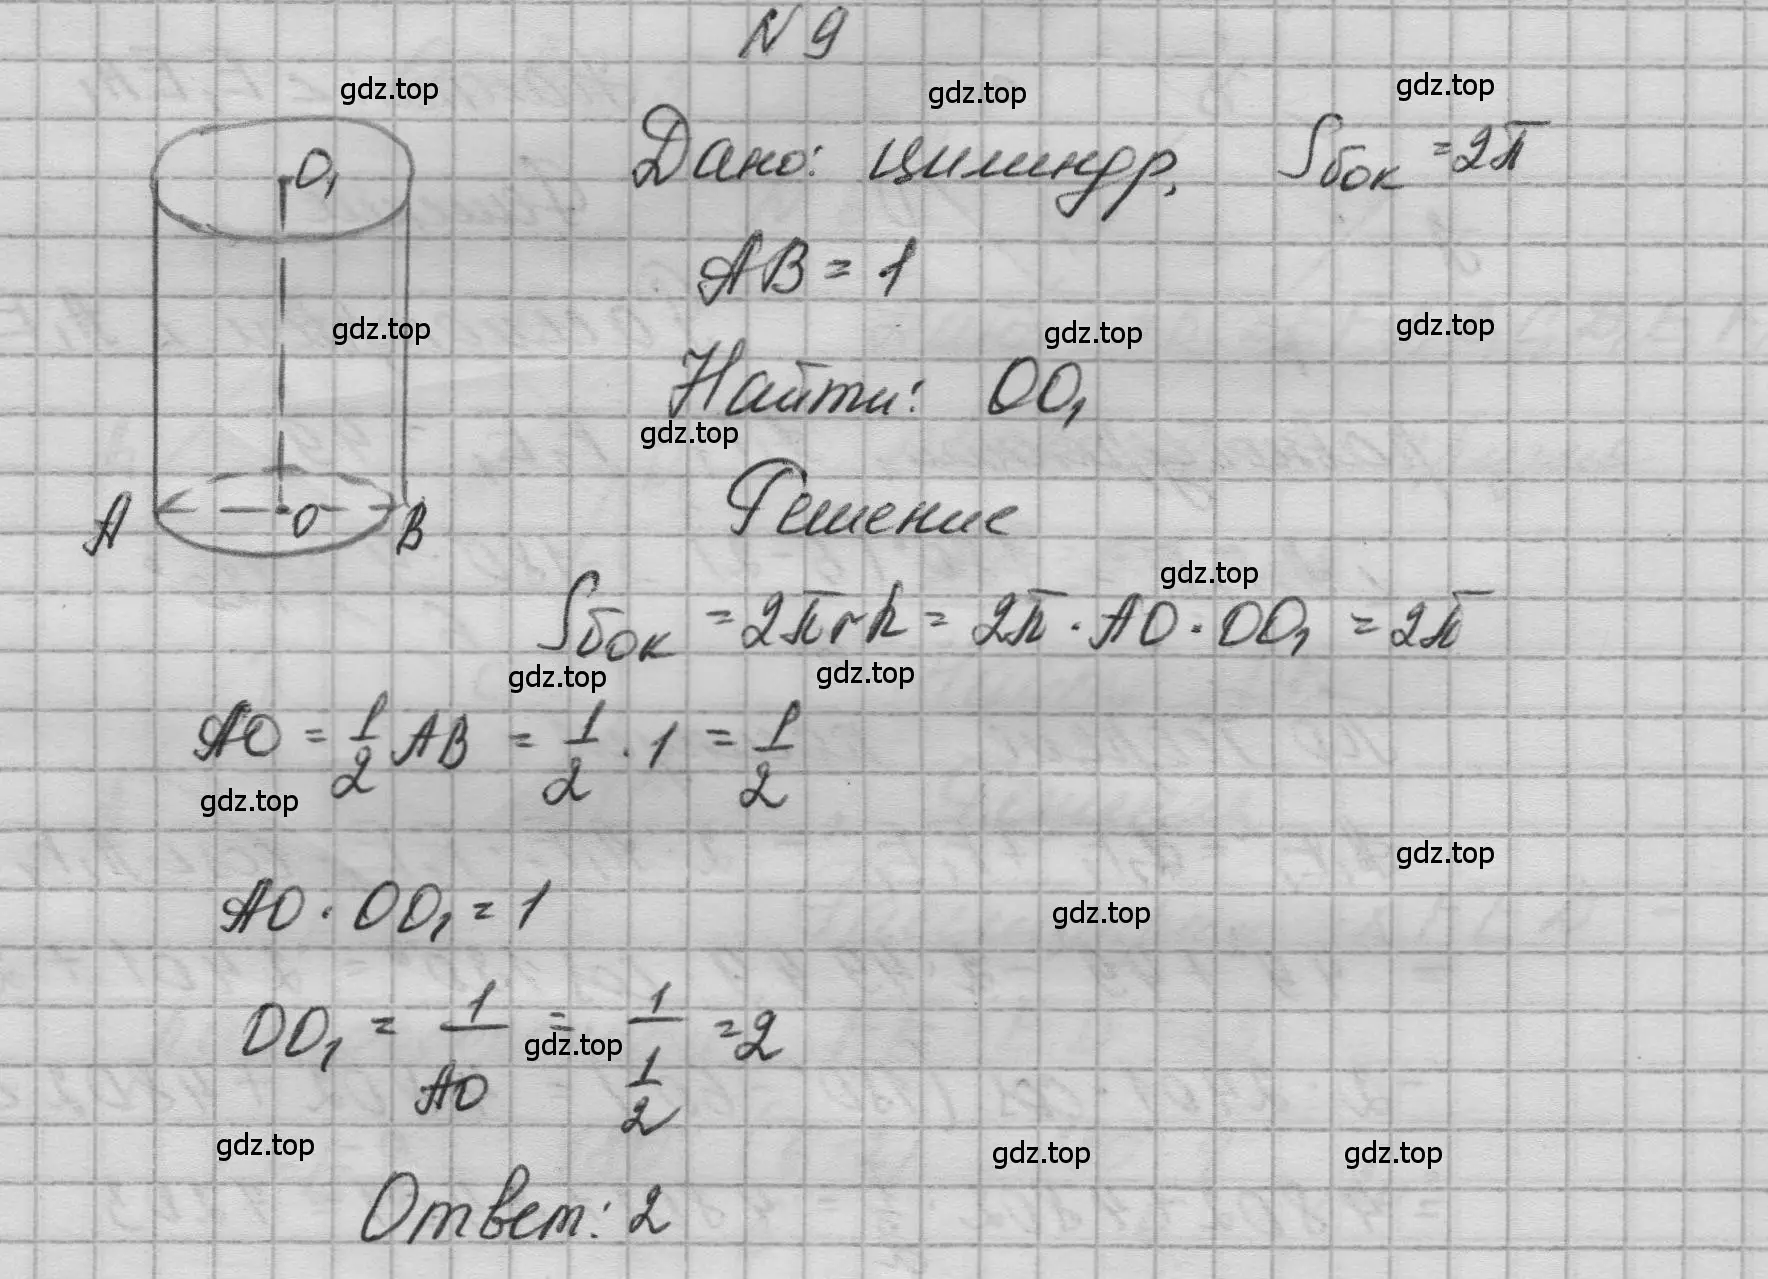 N 9
gdz.top gdz.top gdz.top
Дано: цилиндр, Sбок = 2π
O₁
AB = 1
gdz.top gdz.top gdz.top
Найти: OO₁
gdz.top
Решение
A O B
gdz.top
Sбок = 2πrh = 2π · AO · OO₁ = 2π
gdz.top gdz.top
AO = 1/2 AB = 1/2 · 1 = 1/2
gdz.top
gdz.top
AO · OO₁ = 1
gdz.top
OO₁ = 1/AO = 1/(1/2) = 2
gdz.top
gdz.top gdz.top gdz.top
Ответ: 2